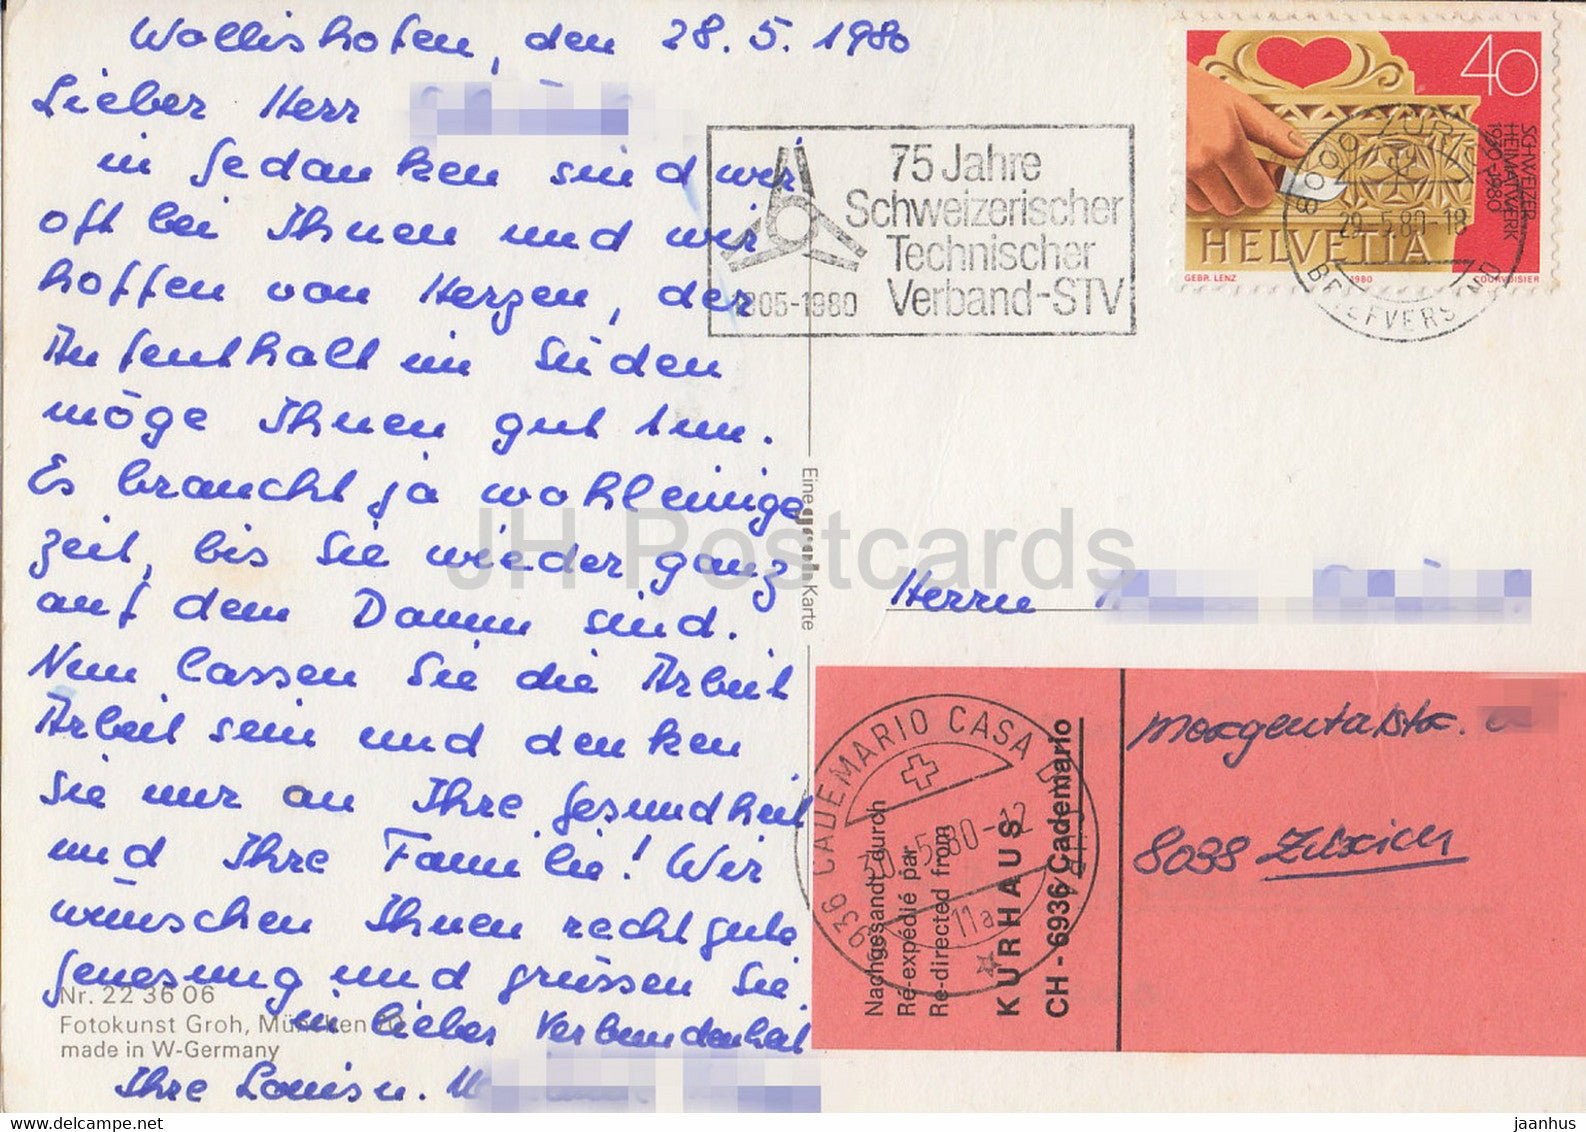 Wollishofen, den 28. 5. 1980
Lieber Herr
in Gedanken sind wir
oft bei Ihnen und wir
hoffen von Herzen, der
Aufenthalt im Süden
möge Ihnen gut tun.
Es braucht ja wohl einige
Zeit, bis Sie wieder ganz
auf dem Damm sind.
Nun lassen Sie die Arbeit
Arbeit sein und denken
Sie nur an Ihre Gesundheit
und Ihre Familie! Wir
wünschen Ihnen recht gute
Genesung und grüssen Sie
in lieber Verbundenheit
Ihre Louis u. M
Nr. 22 36 06
Fotokunst Groh, München
made in W-Germany
Eine Groh Karte
75 Jahre
Schweizerischer
Technischer
Verband-STV
1905-1980
40
SCHWEIZER
HEIMATWERK
1930-1980
HELVETIA
GEBR. LENZ
1980
COURVOISIER
8000 ZÜRICH
29-5.80-18
BRIEFVERSAND
Herrn
Morgentalstr.
8038 Zürich
Nachgesandt durch
Ré-expédié par
Re-directed from
KURHAUS
CH - 6936 Cademario
6936 CADEMARIO CASA DI CURA
30.-5.80-12
11a
JH Postcards
www.hippostcard.com
jaanhus